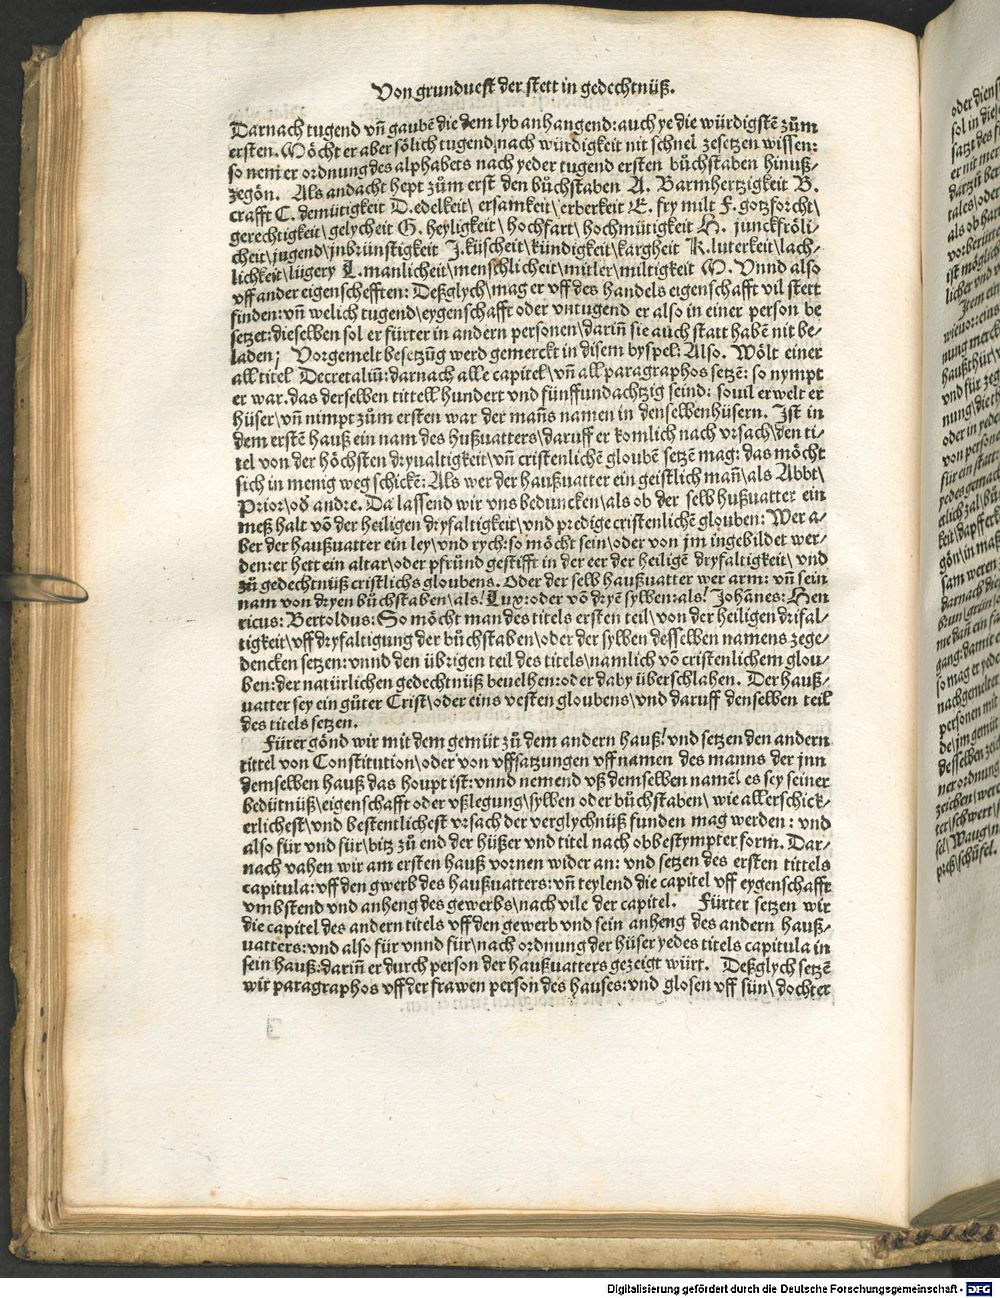 Von grunduest der stett in gedechtnüß.
Darnach tugend vñ gaubẽ die dem lyb anhangend: auch ye die würdigstẽ zům
ersten. Möcht er aber sölich tugend nach würdigkeit nit schnel zesetzen wissen:
so nem er ordnung des alphabets nach yeder tugend ersten bůchstaben hinuß-
zegön. Als andacht hept zům erst den bůchstaben A. Barmhertzigkeit B.
crafft C. demütigkeit D. edelkeit\ ersamkeit\ erberkeit E. fry milt F. gotzforcht\
gerechtigkeit\ gelycheit G. heyligkeit\ hochfart\ hochmütigkeit H. junckfröli-
cheit\ jugend\ jnbrünstigkeit J. küscheit\ kündigkeit\ kargheit K. luterkeit\ lach-
lichkeit\ lügery L. manlicheit\ menschlicheit\ mitler\ miltigkeit M. Vnnd also
vff ander eigenschefften: Deßglych\ mag er vff des handels eigenschafft vil stett
finden: vñ welich tugend\ eygenschafft oder vntugend er also in einer person be
setzet: dieselben sol er fürter in andern personen\ darin̄ sie auch statt habẽ nit be-
laden; Vorgemelt besetzũg werd gemerckt in disem byspel: Also. Wölt einer
all titel Decretaliũ: darnach alle capitel\ vñ all paragraphos setzẽ: so nympt
er war. das derselben tittell hundert vnd fünffundachtzig seind: souil erwelt er
hüser\ vñ nimpt zům ersten war der man̄s namen in denselben hüsern. Ist in
dem erstẽ hauß ein nam des hußuatters\ daruff er komlich nach vrsach\ den ti-
tel von der höchsten dryualtigkeit\ vñ cristenlichẽ gloubẽ setzẽ mag: das möcht
sich in menig weg schickẽ: Als wer der haußuatter ein geistlich man̄\ als Abbt\
Prior\ od̃ andre. Da lassend wir vns beduncken\ als ob der selb hußuatter ein
meß halt võ der heiligen dryfaltigkeit\ vnd predige cristenlichẽ glouben: Wer a-
ber der haußuatter ein ley\ vnd rych: so möcht sein\ oder von jm ingebildet wer-
den: er hett ein altar\ oder pfründ gestifft in der eer der heiligẽ dryfaltigkeit\ vnd
zů gedechtnüß cristlichs gloubens. Oder der selb haußuatter wer arm: vñ sein
nam von dryen bůchstaben\ als! Lux: oder võ dryẽ sylben: als! Johãnes: Hen
ricus: Bertoldus: So möcht man des titels ersten teil\ von der heiligen drifal-
tigkeit\ vff dryfaltigung der bůchstaben\ oder der sylben desselben namens zege-
dencken setzen: vnnd den übrigen teil des titels\ namlich võ cristenlichem glou-
ben: der natürlichen gedechtnüß beuelhen: oder daby überschlahen. Der hauß-
uatter sey ein gůter Crist\ oder eins vesten gloubens\ vnd daruff denselben teil
des titels setzen.
Fürer gönd wir mit dem gemüt zů dem andern hauß! vnd setzen den andern
tittel von Constitution\ oder von vffsatzungen vff namen des manns der jnn
demselben hauß das houpt ist: vnnd nemend vß demselben namẽ\ es sey seiner
bedütnüß\ eigenschafft oder vßlegung\ sylben oder bůchstaben\ wie aller schick-
erlichest\ vnd bestentlichest vrsach der verglychnüß funden mag werden: vnd
also für vnd für\ bitz zů end der hüßer vnd titel nach obbestympter form. Dar-
nach vahen wir am ersten hauß vornen wider an: vnd setzen des ersten tittels
capitula: vff den gwerb des haußuatters: vñ teylend die capitel vff eygenschafft
vmbstend vnd anheng des gewerbs\ nach vile der capitel. Fürter setzen wir
die capitel des andern titels vff den gewerb vnd sein anheng des andern hauß-
uatters: vnd also für vnnd für\ nach ordnung der hüser yedes titels capitula in
sein hauß: darin̄ er durch person der haußuatters gezeigt würt. Deßglych setzẽ
wir paragraphos vff der frawen person des hauses: vnd glosen vff sün\ dochter
oder dienst
sol in diese
satzt des
er nit mer
tales\ oder
als ob ha
vorberürt
ist möglich
licher vnd
nung merck
haußthür\
vnd für zeg
nung\ die th
oder in yede
von person
für ein statt:
yedes gemac
etlich zal\ bi
keit\ dapfferk
gön\ in maß
sam weren
darnach die
me dan̄ ein sa
gang: damit
so mag er yede
nachgemelter
personen mit
de\ jm gemüt
desselben zeic
ner ordnung
zeichen\ were
ter\ schwert\
sel\ Waug\ n
preß\ schüfel.
Digitalisierung gefördert durch die Deutsche Forschungsgemeinschaft - DFG